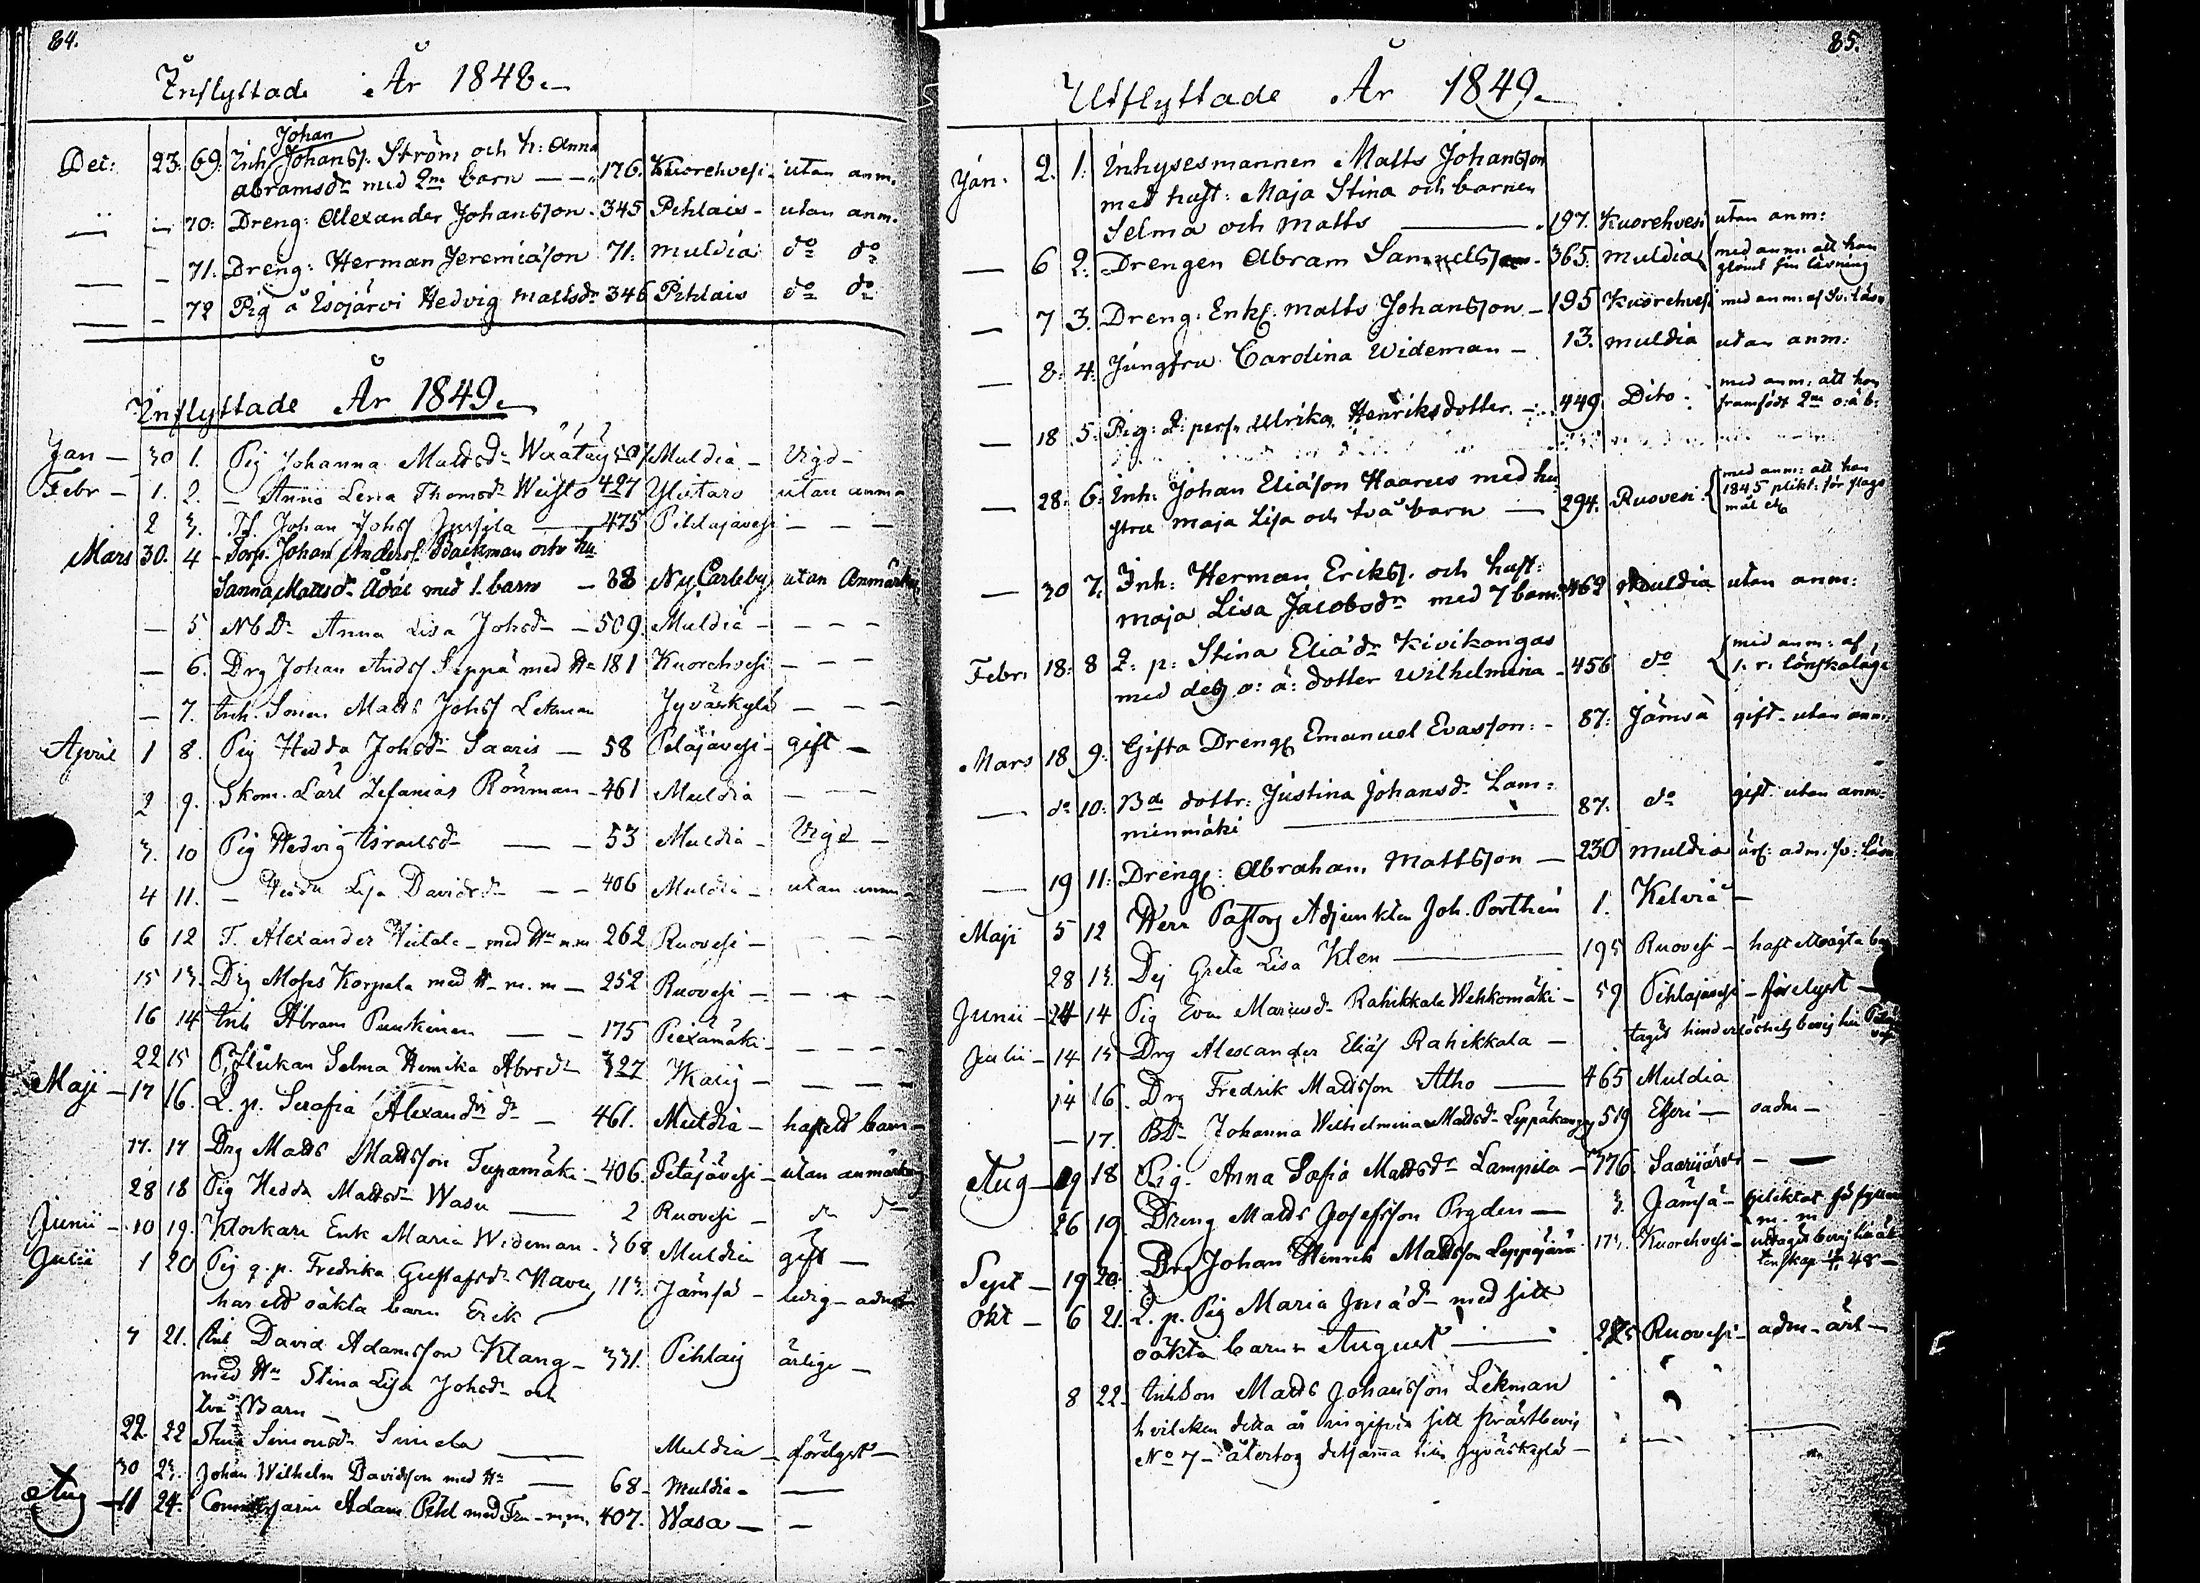 84.
Inflyttade År 1848.
Dec: 23. 69. Inh Johan Johanss. Ström och h: Anna
abramsdr med 2ne barn — 176. Kuorehvesi utan anm.
— — 70: Dreng: Alexander Johansson. 345 Pihlais - utan anm.
— — 71. Dreng: Herman Jeremiasson 71. muldia do do
— — 72 Pig å Isojärvi Hedvig mattsdr 346 Pihlais do do
Inflyttade År 1849.
Jan — 30 1. Pig Johanna Mattsdr Muldia - Vigd -
Febr — 1. 2. — Anna Lena Thomsdr 427 utan anm
2 3. Johan Johss — 475 Pihlajavesi — — —
Mars 30. 4 - Torp. Johan Anderss. Backman och hu
Sanna Mattsdr med 1. barn — 38 Ny Carleby utan Anmärkn
— 5. Anna Lisa Johsdr — 509. Muldia - — — —
— 6. Drg Johan Ands Seppä med Hu 181 Kuorehvesi — — —
— 7. Inh. Sonen Matts Johss Lekman Jyväskylä — — —
April 1 8. Pig Hedda Johsdr Saaris — 58 Petäjävesi - gift —
2 9. Skom. Lärl Zefanias Rönman - 461 Muldia — — —
3. 10 Pig Hedvig Israelsdr — — 53 Muldia - Vigd -
4 11. — Lisa Davidsdr — — 406 Muldia - utan anm
6 12 T. Alexander Viitala - med Hu m.m 262 Ruovesi — — — —
15 13. Drg Moses Korpela med H- m.m — 252 Ruovesi — — — —
16 14 Inh Abram Puuskinen — — 175 Piexämäki — — — —
22 15 P. Flickan Selma Henrika Abrsdr 327 — — — —
Maji — 17 16. Q. p. Serafia Alexandrsdr — 461. Muldia - haft ett barn
17. 17 Drg Matts Mattsson Tupamäki - 406. Petäjävesi - utan anmärkn
28 18 Pig Hedda Mattsdr Wasu — 2 Ruovesi — do do
Junii — 10 19. Klockare Enk Maria Wideman - 368 Muldia gift —
Julii 1 20 Pig q. p. Fredrika Gustafsdr 113. Jämsä - ledig -
har ett oäkta barn Erik
7 21. Inh David Adamsson Klang - 331. Pihlaij ärlige —
med Hu Stina Lisa Johsdr och
två Barn —
22. 22 Simonsdr Simola — Muldia -
30 23. Johan Wilhelm Davidsson med Hu — 68 - Muldia - —
Aug — 11 24. Adam Pihl med Fru - m.m. 407. Wasa — —
85.
Utflyttade År 1849.
Jan. 2. 1. Inhysesmannen Matts Johansson
med hust: Maja Stina och barnen
Selma och Matts — 197. Kuorehvesi utan anm:
— 6 2. Drengen Abram Samuelsson - 365. muldia med anm: att han
glömt sin läsning
— 7 3. Dreng: Enkl. matts Johansson — 195 Kuorehvesi med anm: af sv: läsn
— 8. 4. Jungfru Carolina Wideman — 13. muldia utan anm:
— 18 5. Pig: q: pers. Ulrika Henriksdotter — 449. Dito: med anm: att hon
framfödt 2ne o:ä b:
— 28. 6. Inh: Johan Eliasson Haarus med hu
stru maja Lisa och två barn — 294. Ruovesi med anm: att han
1845 plikt: för slags
mål etc
— 30 7. Inh: Herman Erikss. och hust:
maja Lisa Jacobsdr med 7 barn 462 Muldia utan anm:
Febr. 18. 8 Q: p: Stina Eliædr Kivikangas
med dess o: ä: dotter Wilhelmina - 456 do med anm: af
1. r: lönskaläge
Mars 18 9. Gifta Drengs Emanuel Evasson: - 87. Jämsä gift - utan anm:
— do 10. Bd dottr: Justina Johansdr Lam=
minmäki — 87. do gift utan anm
— 19 11. Drengs: Abraham Mattsson — 230 muldia adm. sv: läsn
Maji 5 12 Herr Pastors Adjunkten Joh. Porthen 1. Kelviå —
28 13. Dej Greta Lisa Klen — 195 Ruovesi - haft oägta barn
Junii — 24 14 Pig Eva Mariæsdr Rahikkala Wehkomäki — 59 Pihlajavesi -
Julii — 14 15 Drg Alexander Eliäs Rahikkala — tagit hinderlöshets bevis
14 16. Drg Fredrik Mattsson Alho — 465 Muldia
— 17. Bdr Johanna Wilhelmina Mattsdr Leppäkangas 519 Etseri — oadm —
Aug — 19 18 Pig. Anna Sofia Mattsdr Lampila — 376. Saarijärvi — —
26 19. Dreng Matts Josefsson Prydén — 3. Jämsä - pliktat för fylleri
m. m.
Sept — 19 20. Drg Johan Henrik Mattsson Leppäjärvi 173. Kuorehvesi - uttagit bevis till äk
tenskap 48 —
Okt — 6 21. Q. p. Pig Maria med sitt
oäkta barn August — 285 Ruovesi - adm - ärl —
8 22. InhSon Matts Johansson Lekman
hvilken detta år ingifvit sitt prästbevis
No 7 - återtog detsamma till Jyväskylä —